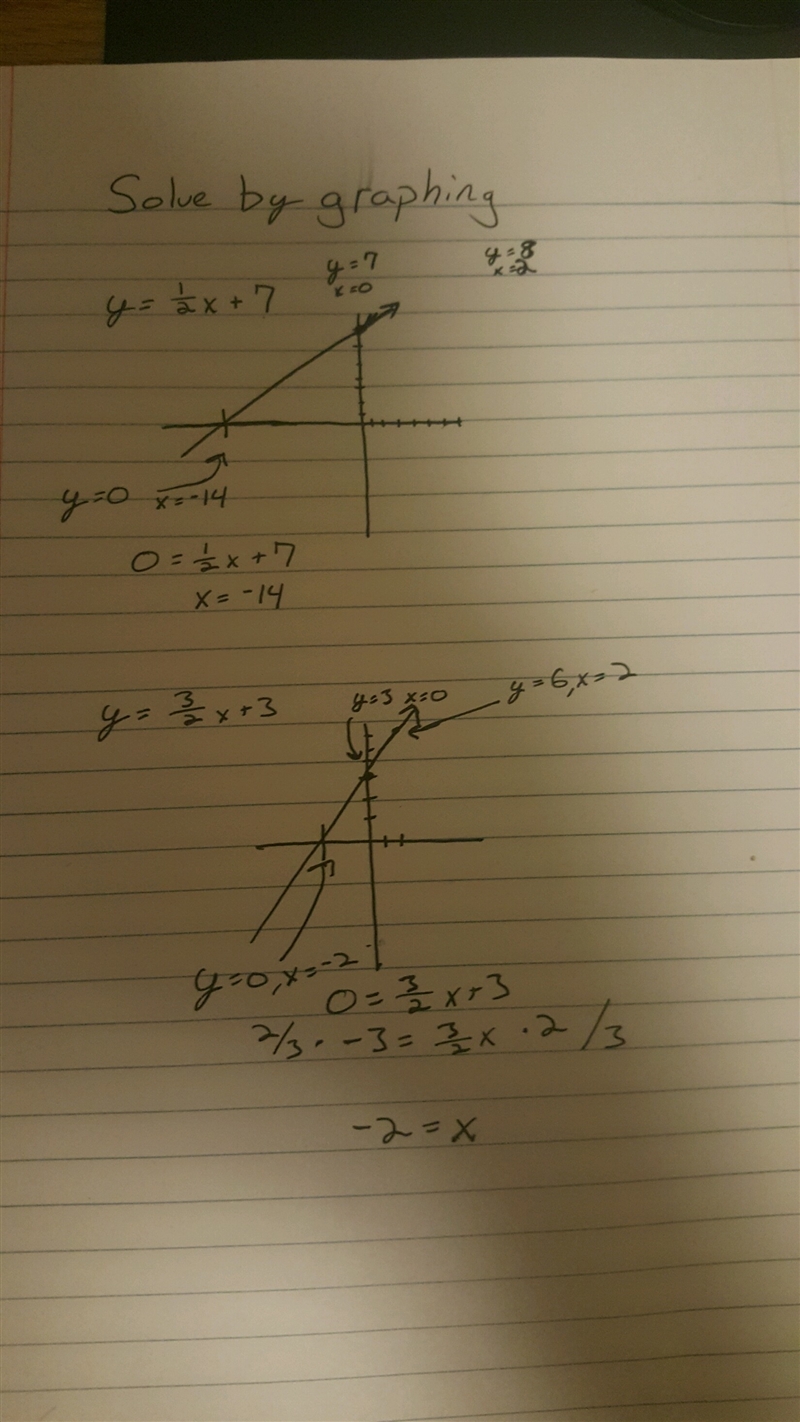 Solve by graphing
y = 7
x = 0
y = 8
x = 2
y = 1/2 x + 7
y = 0 x = -14
0 = 1/2 x + 7
x = -14
y = 3/2 x + 3
y = 3 x = 0
y = 6, x = 2
y = 0, x = -2
0 = 3/2 x + 3
2/3 · -3 = 3/2 x · 2/3
-2 = x